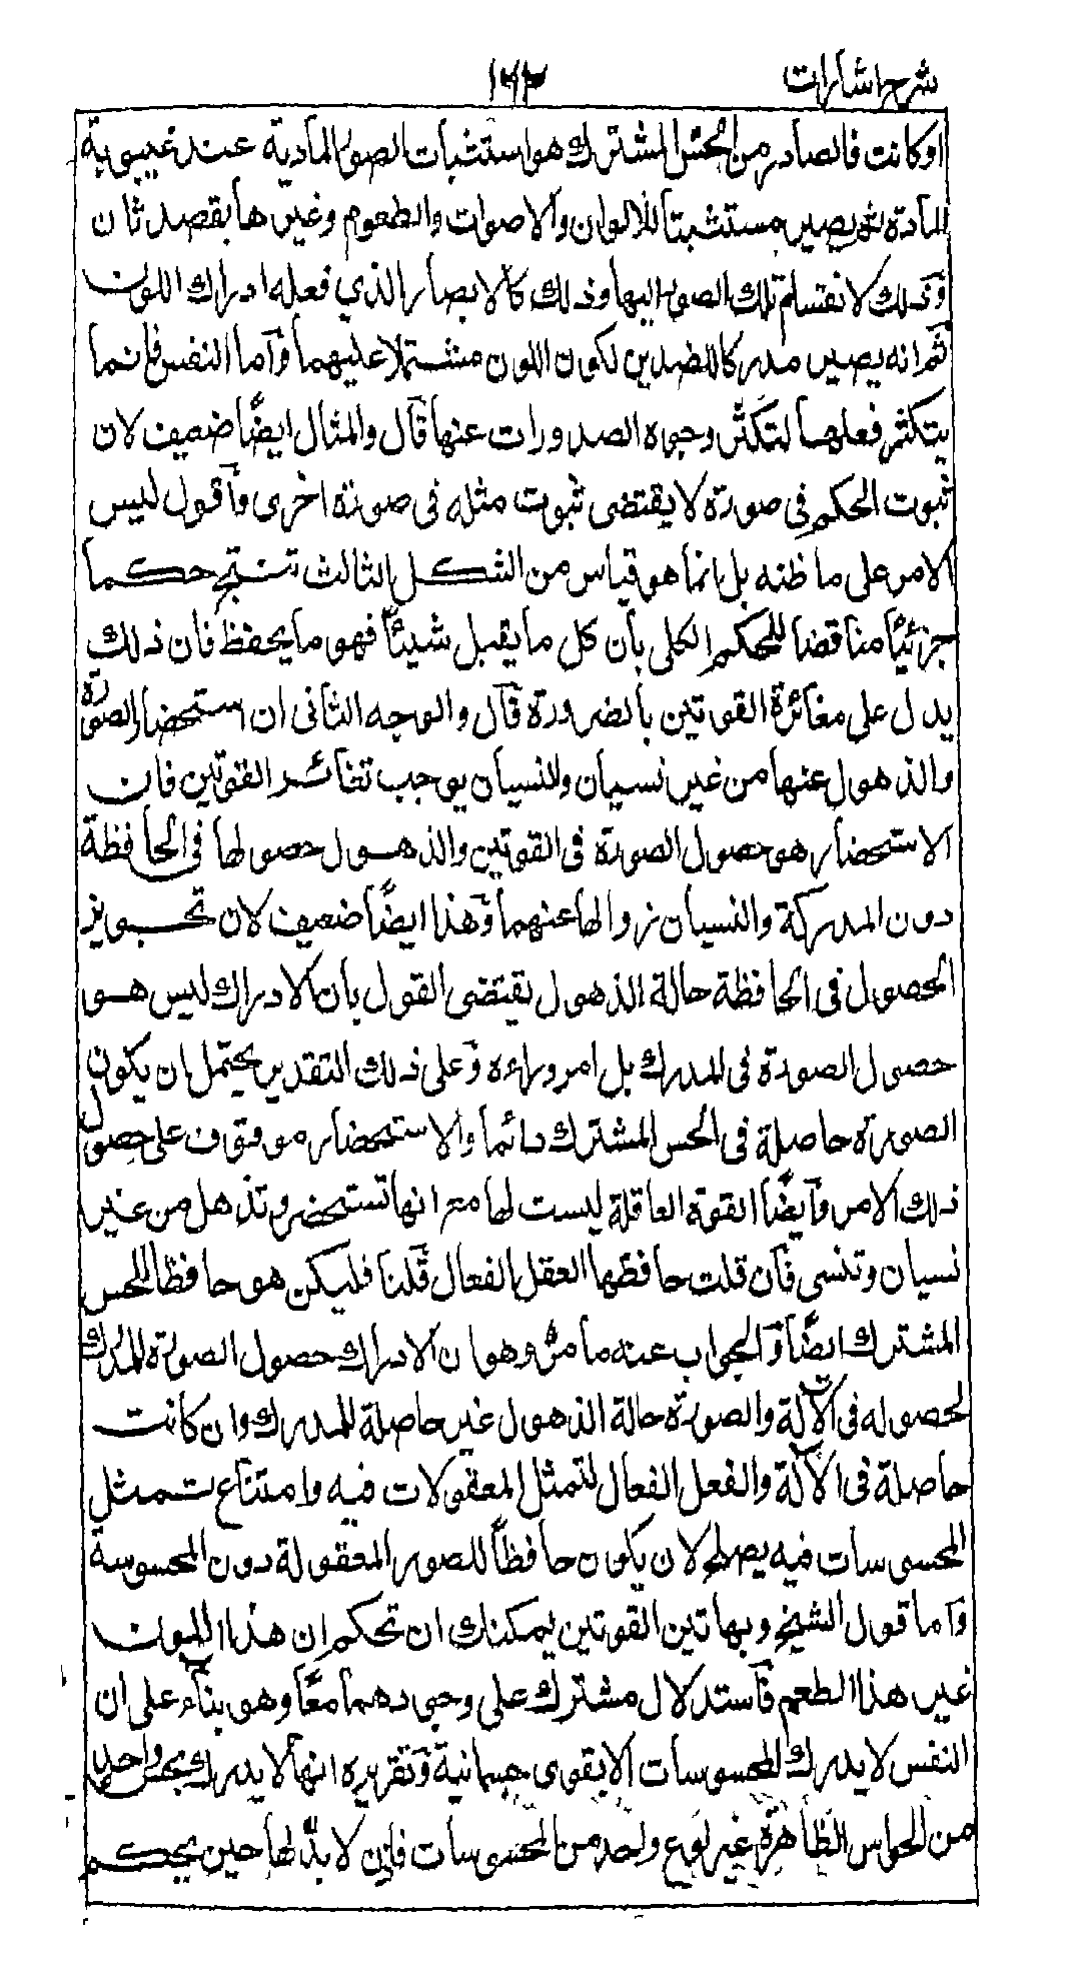 شرح اشارات ١٦٣
او كانت فالصادر من الحس المشترك هو استثبات الصور المادية عند غيبوبة
المادة ثم يصير مستثبتا للالوان والاصوات والطعوم وغيرها بقصد ثان
وذلك لانقسام تلك الصور اليها وذلك كالابصار الذي فعله ادراك اللون
ثم انه يصير مدركا للضدين لكون اللون مشتملا عليهما وآما النفس فانما
يتكثر فعلها لتكثر وجوه الصدورات عنها قال والمثال ايضًا ضعيف لان
ثبوت الحكم في صورة لا يقتضى ثبوت مثله فى صورة اخرى وأقول ليس
الامر على ما ظنه بل انما هو قياس من الشكل الثالث تنتج حكما
جزئيًا مناقضا للحكم الكلى بأن كل ما يقبل شيئًا فهو ما يحفظ فان ذلك
يدل على مغائرة القوتين بالضرورة قال والوجه الثانى ان استحضار الصورة
والذهول عنها من غير نسيان والنسيان يوجب تغائر القوتين فان
الاستحضار هو حصول الصورة فى القوتين والذهول حصولها فى الحافظة
دون المدركة والنسيان زوالها عنهما وهذا ايضًا ضعيف لان تجويز
الحصول فى الحافظة حالة الذهول يقتضى القول بأن الادراك ليس هو
حصول الصورة فى المدرك بل امر وراءه وعلى ذلك التقدير يحتمل ان يكون
الصورة حاصلة فى الحس المشترك دائما والاستحضار موقوف على حصول
ذلك الامر وآيضًا القوة العاقلة ليست لها مع انها تستحضر وتذهل من غير
نسيان وتنسى فآن قلت حافظها العقل الفعال قلنا فليكن هو حافظا للحس
المشترك ايضًا وآلجواب عنه ما مرّ وهو ان الادراك حصول الصورة للمدرك
لحصوله فى الآلة والصورة حالة الذهول غير حاصلة للمدرك وان كانت
حاصلة فى الآلة والفعل الفعال لتمثل المعقولات فيه وامتناع تمثل
المحسوسات فيه يصلح لان يكون حافظًا للصور المعقولة دون المحسوسة
وآما قول الشيخ وبهاتين القوتين يمكنك ان تحكم ان هذا اللون
غير هذا الطعم فآستدلال مشترك على وجودهما معًا وهو بناء على ان
النفس لا يدرك المحسوسات الا بقوى جسمانية وتقريره انها لا يدرك بحس واحد
من الحواس الظاهرة غير نوع واحد من المحسوسات فاذن لا بدّ لها حين يحكم